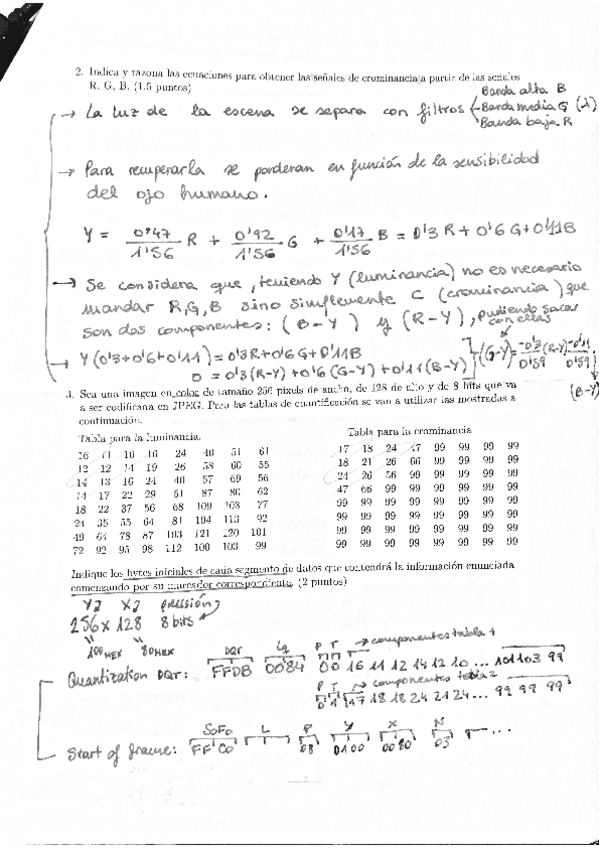 2. Indica y razona las ecuaciones para obtener las señales de crominancia a partir de las señales
R, G, B. (1.5 puntos)
→ La luz de la escena se separa con filtros
Banda alta B
Banda media G (λ)
Banda baja R
→ Para recuperarla se ponderan en función de la sensibilidad
del ojo humano.
Y = 0'47/1'56 R + 0'92/1'56 G + 0'17/1'56 B = 0'3 R + 0'6 G + 0'11B
→ Se considera que, teniendo Y (luminancia) no es necesario
mandar R, G, B sino simplemente C (crominancia) que
son dos componentes: (B-Y) y (R-Y), pudiendo sacar
con ellas
→ Y(0'3+0'6+0'11) = 0'3R+0'6G+0'11B
0 = 0'3(R-Y) + 0'6(G-Y) + 0'11(B-Y)
(G-Y) = -0'3/0'59 (R-Y) -0'11/0'59
(B-Y)
3. Sea una imagen en color de tamaño 256 pixels de ancho, de 128 de alto y de 8 bits que va
a ser codificada en JPEG. Para las tablas de cuantificación se van a utilizar las mostradas a
continuación.
Tabla para la luminancia.
16 11 10 16 24 40 51 61
12 12 14 19 26 58 60 55
14 13 16 24 40 57 69 56
14 17 22 29 51 87 80 62
18 22 37 56 68 109 103 77
24 35 55 64 81 104 113 92
49 64 78 87 103 121 120 101
72 92 95 98 112 100 103 99
Tabla para la crominancia
17 18 24 47 99 99 99 99
18 21 26 66 99 99 99 99
24 26 56 99 99 99 99 99
47 66 99 99 99 99 99 99
99 99 99 99 99 99 99 99
99 99 99 99 99 99 99 99
99 99 99 99 99 99 99 99
99 99 99 99 99 99 99 99
Indique los bytes iniciales de cada segmento de datos que contendrá la información enunciada
comenzando por su marcador correspondiente. (2 puntos)
precisión
256 x 128 8 bits
100 HEX 80 HEX
DQT Lq P T → componentes tabla 1
Quantization DQT: FFDB 0084 00 16 11 12 14 12 10 ... 101 103 99
P T → componentes tabla 2
0 1 17 18 18 24 21 24 ... 99 99 99
SOF0 L P Y X N
Start of frame: FF C0 08 0100 0080 03 ...